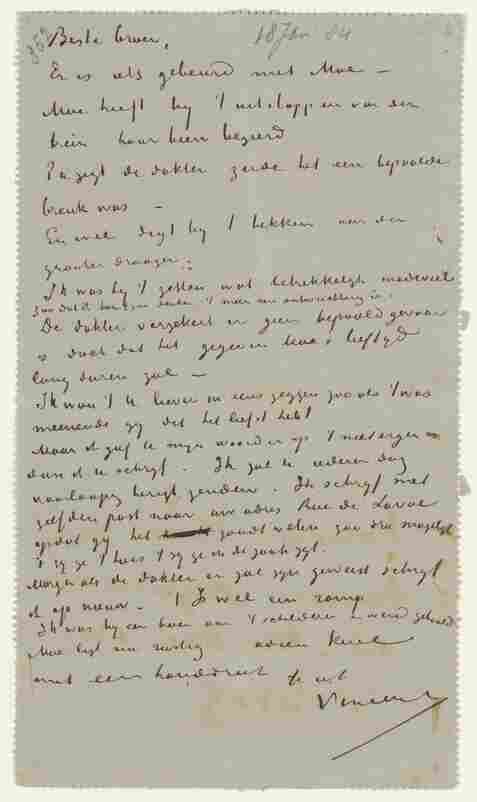 359 18 Jan 84
Beste broer,
Er is iets gebeurd met Moe –
Moe heeft bij 't uitstappen van den
trein haar been bezeerd
Pa zegt de dokter zeide het een bepaalde
breuk was –
En wel digt bij 't bekken aan den
grooten draaijer.
Ik was bij 't zetten wat betrekkelijk meeviel
zoo dat het
De dokter verzekert er geen bepaald gevaar
is doch dat het gegeven Moe's leeftijd
lang duren zal –
Ik wou 't U liever in eens zeggen zooals 't was
meenende gij dat het liefst hebt
Maar ik geef U mijn woord er op 't niet erger is
dan ik U schrijf. Ik zal U iederen dag
voorloopig berigt zenden. Ik schrijf met
zelfden post naar uw adres Rue de Laval
opdat gij het zoudt weten zoo dra mogelijk
't zij ge thuis 't zij ge in de zaak zijt.
Morgen als de dokter er zal zijn geweest schrijf
ik op nieuw. 't Is wel een ramp
Ik was bij een boer aan 't schilderen en werd gehaald
Moe ligt nu rustig adieu kerel
met een handdruk t. à t.
Vincent